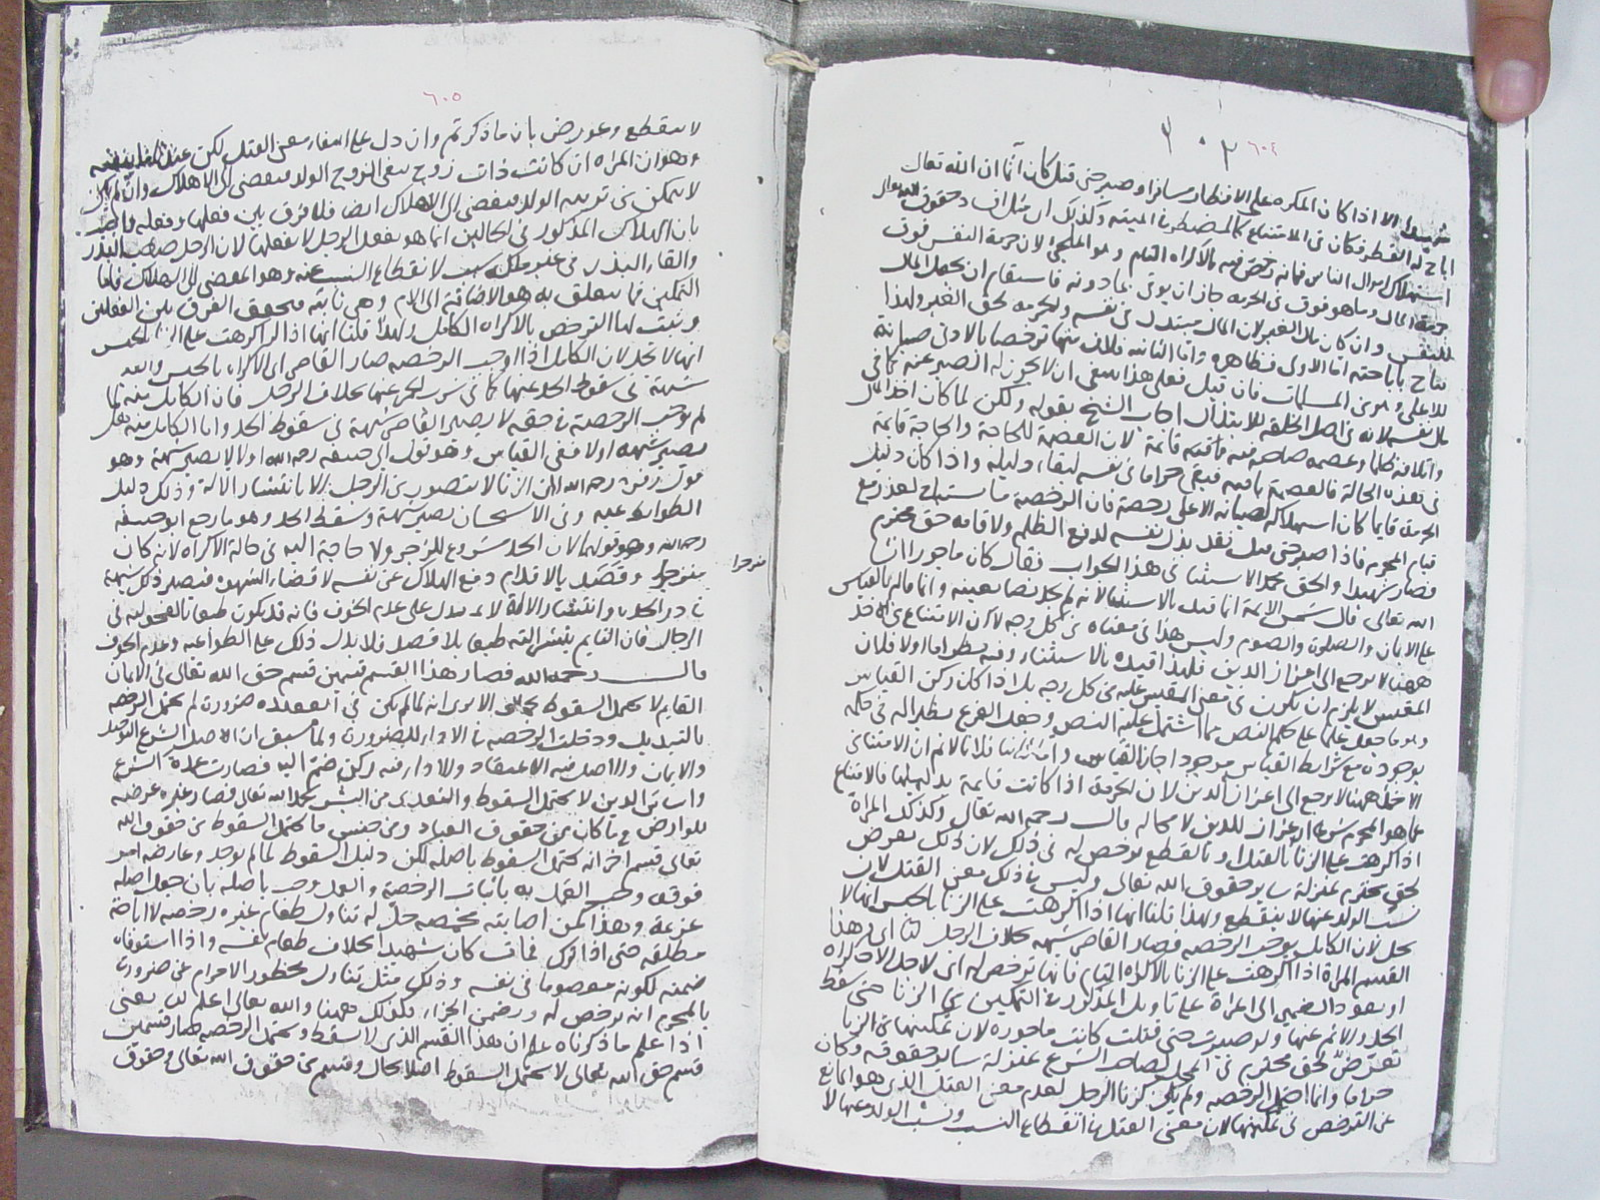 ٦٠٤
شهيدا الا اذا كان المكره على الافطار مسافرا وصبر حتى قتل كان آثما ان الله تعالى
اباح له الفطر فكان في الامتناع كالمضطر في الميتة وكذلك اى مثل حقوق الله تعالى
استهلاك اموال الناس فانه رخص فيه بالاكراه التام وهو الملجئ لان حرمة النفس فوق
حرمة المال وما هو فوق في الحرمة جاز ان يوقى بما دونه فاستقام ان يجعل المال
للنفس وان كان مال الغير لان المال مبتذل في نفسه والحرمة لحق الغير ولهذا
تباح باباحته اما الاولى فظاهره واما الثانية فلان فيها ترخصا بالادنى صيانة
للاعلى وهو من المسلمات فان قيل فعلى هذا ينبغى ان لا يجوز له الصبر عنه كما في
مال نفسه لانه في اصل الخلقة للابتذال اجاب الشيخ بقوله ولكن لما كان اخذ المال
واتلافه ظلما وعصمة صاحبه فيه قائمة لان العصمة للحاجة والحاجة قائمة
في هذه الحالة فالعصمة باقية فبقى حراما في نفسه لبقاء دليله واذا كان دليل
الحرمة قايما كان استهلاكه لصيانة الاعلى رخصة فان الرخصة ما يستباح لعذر مع
قيام المحرم فاذا صبر حتى قتل فقد بذل نفسه لدفع الظلم ولاقامة حق محترم
فصار شهيدا والحق محمد الاستثناء في هذا الجواب فقال كان ماجورا ان شاء
الله تعالى قال شمس الائمة انما قيد بالاستثناء لانه لم يجد نصا بعينه وانما قاله بالقياس
على الايمان والصلوة والصوم وليس هذا في معناه من كل وجه لان الامتناع من الاخذ
ههنا لا يرجع الى اعزاز الدين فلهذا قيده بالاستثناء وفيه نظر اما اولا فلان
المقيس لا يلزم ان يكون في معنى المقيس عليه من كل وجه بل اذا كان ركن القياس
وهو ما جعل علما على حكم النص مما اشتمل عليه النص وجعل الفرع نظيرا له في حكمه
بوجوده مع شرايط القياس موجودا جاز القياس واما ثانيا فلانا لا نم ان الامتناع
الاخذ ههنا لا يرجع الى اعزاز الدين لان الحرمة اذا كانت قايمة بدليلها فالامتناع
عما هو المحرم شرعا اعزاز للدين لا محالة قال رحمه الله تعالى وكذلك المراة
اذا اكرهت على الزنا بالقتل او بالقطع يرخص له في ذلك لان ذلك تعرض
لحق محترم بمنزلة ساير حقوق الله تعالى وليس في ذلك معنى القتل لان
نسب الولد عنها لا ينقطع ولهذا قلنا انها اذا اكرهت على الزنا بالحبس انها لا
تحد لان الكامل يوجب الرخصة فصار القاصر شبهة بخلاف الرجل لنا اى هذا
القسم المراة اذا اكرهت على الزنا بالاكراه التام فانها ترخص له اى لاجل الاكراه
او يعود الضمير الى المراة على تاويل المذكور في التمكين من الزنا حتى سقط
الحد والاثم عنها ولو صبرت حتى قتلت كانت ماجورة لان تمكينها من الزنا
تعرض لحق محترم في المحل لصاحب الشرع بمنزلة ساير حقوقه وكان
حراما وانما احتمل الرخصة ولم يكن كزنا الرجل لعدم معنى القتل الذى هو المانع
عن الترخص في تمكينها لان معنى القتل في انقطاع النسب ونسب الولد عنها لا
٦٠٥
لا ينقطع وعورض بان ما ذكرتم وان دل على انتفاء معنى القتل لكن
وهو ان المراه ان كانت ذات زوج ينفى الزوج الولد فيفضى الى الاهلاك وان لم تكن
لا يتمكن من تربية الولد فيفضى الى الاهلاك ايضا فلا فرق بين فعلها وفعله واجيب
بان الهلاك المذكور في الحالين انما هو بفعل الرجل لا بفعلها لان الرجل صاحب البذر
والقاء البذر في غير ملكه سبب لانقطاع النسب عنه وهو المفضى الى الاهلاك فاما
التمكين فما يتعلق به هو الاضافة الى الام وهى ثابته فتحقق الفرق بين الفعلين
وثبت لها الترخص بالاكراه الكامل ولهذا قلنا انها اذا اكرهت على الزنا بالحبس
انها لا تحد لان الكامل اذا اوجب الرخصه صار القاصر اى الاكراه بالحبس والقيد
شبهة في سقوط الحد عنها كما في شرب الخمر عنها بخلاف الرجل فان الكامل منه لما
لم يوجب الرخصة في حقه لا يصير القاصر شبهة في سقوط الحد واما الكامل منه هل
يصير شبهة اولا ففى القياس وهو قول ابى حنيفه رحمه الله اولا لا يصير شبهة وهو
قول زفر رحمه الله لان الزنا لا يتصور من الرجل الا بانتشار الالة وذلك دليل
الطواعيه وفى الاستحسان يصير شبهة ويسقط الحد وهو ما رجع ابو حنيفة
رحمه الله وهو قولهما لان الحد مشروع للزجر ولا حاجة اليه في حالة الاكراه لانه كان
منزجرا وقصد بالاقدام دفع الهلاك عن نفسه لا قضاء الشهوة فيصير ذلك شبهة
منزجرا
في درء الحد وانتشار الالة لا يدل على عدم الخوف فانه قد يكون طبعا بالفحولية في
الرجال فان النايم ينتشر التة طبعا بلا قصد فلا يدل ذلك على الطواعيه وعدم الخوف
قال رحمه الله فصار هذا القسم قسمين قسم حق الله تعالى في الايمان
القايم لا يحتمل السقوط بحال الا يرى انه لما لم يكن في العقد ضرورة لم يحتمل الرخصه
بالتبديل ودخلت الرخصه في الاداء للضرورة ولما سبق ان الاصل في الشرع التوحيد
والايمان والاصل فيه الاعتقاد والاداء فيه ركن ضم اليه فصارت عمدة الشرع
واساس الدين لا يحتمل السقوط والتعدى من البشر بحمد الله تعالى فصار غيره عرضه
للعوارض وما كان من حقوق العباد ومن جنس ما يحتمل السقوط من حقوق الله
تعالى قسم اخر انه يحتمل السقوط باصله لكن دليل السقوط لما لم يوجد وعارضه امر
فوقه وجب العمل به باثبات الرخصة والعمل وجب باصله بان جعل اصله
عزيمة وهذا كمن اصابته مخمصه حل له تناول طعام غيره رخصه لا اباحة
مطلقه حتى اذا ترك فمات كان شهيدا بخلاف طعام نفسه واذا استوفاه
ضمنه لكونه معصوما في نفسه وذلك مثل تناول محظور الاحرام عن ضرورة
بالمحرم انه يرخص له ويضمن الجزاء فكذلك ههنا والله تعالى اعلم اى يعنى
اذا علم ما ذكرناه علم ان هذا القسم الذى لا يسقط ويحتمل الرخصه صار قسمين
قسم حق الله تعالى لا يحتمل السقوط اصلا بحال وقسم من حقوق الله تعالى وحقوق